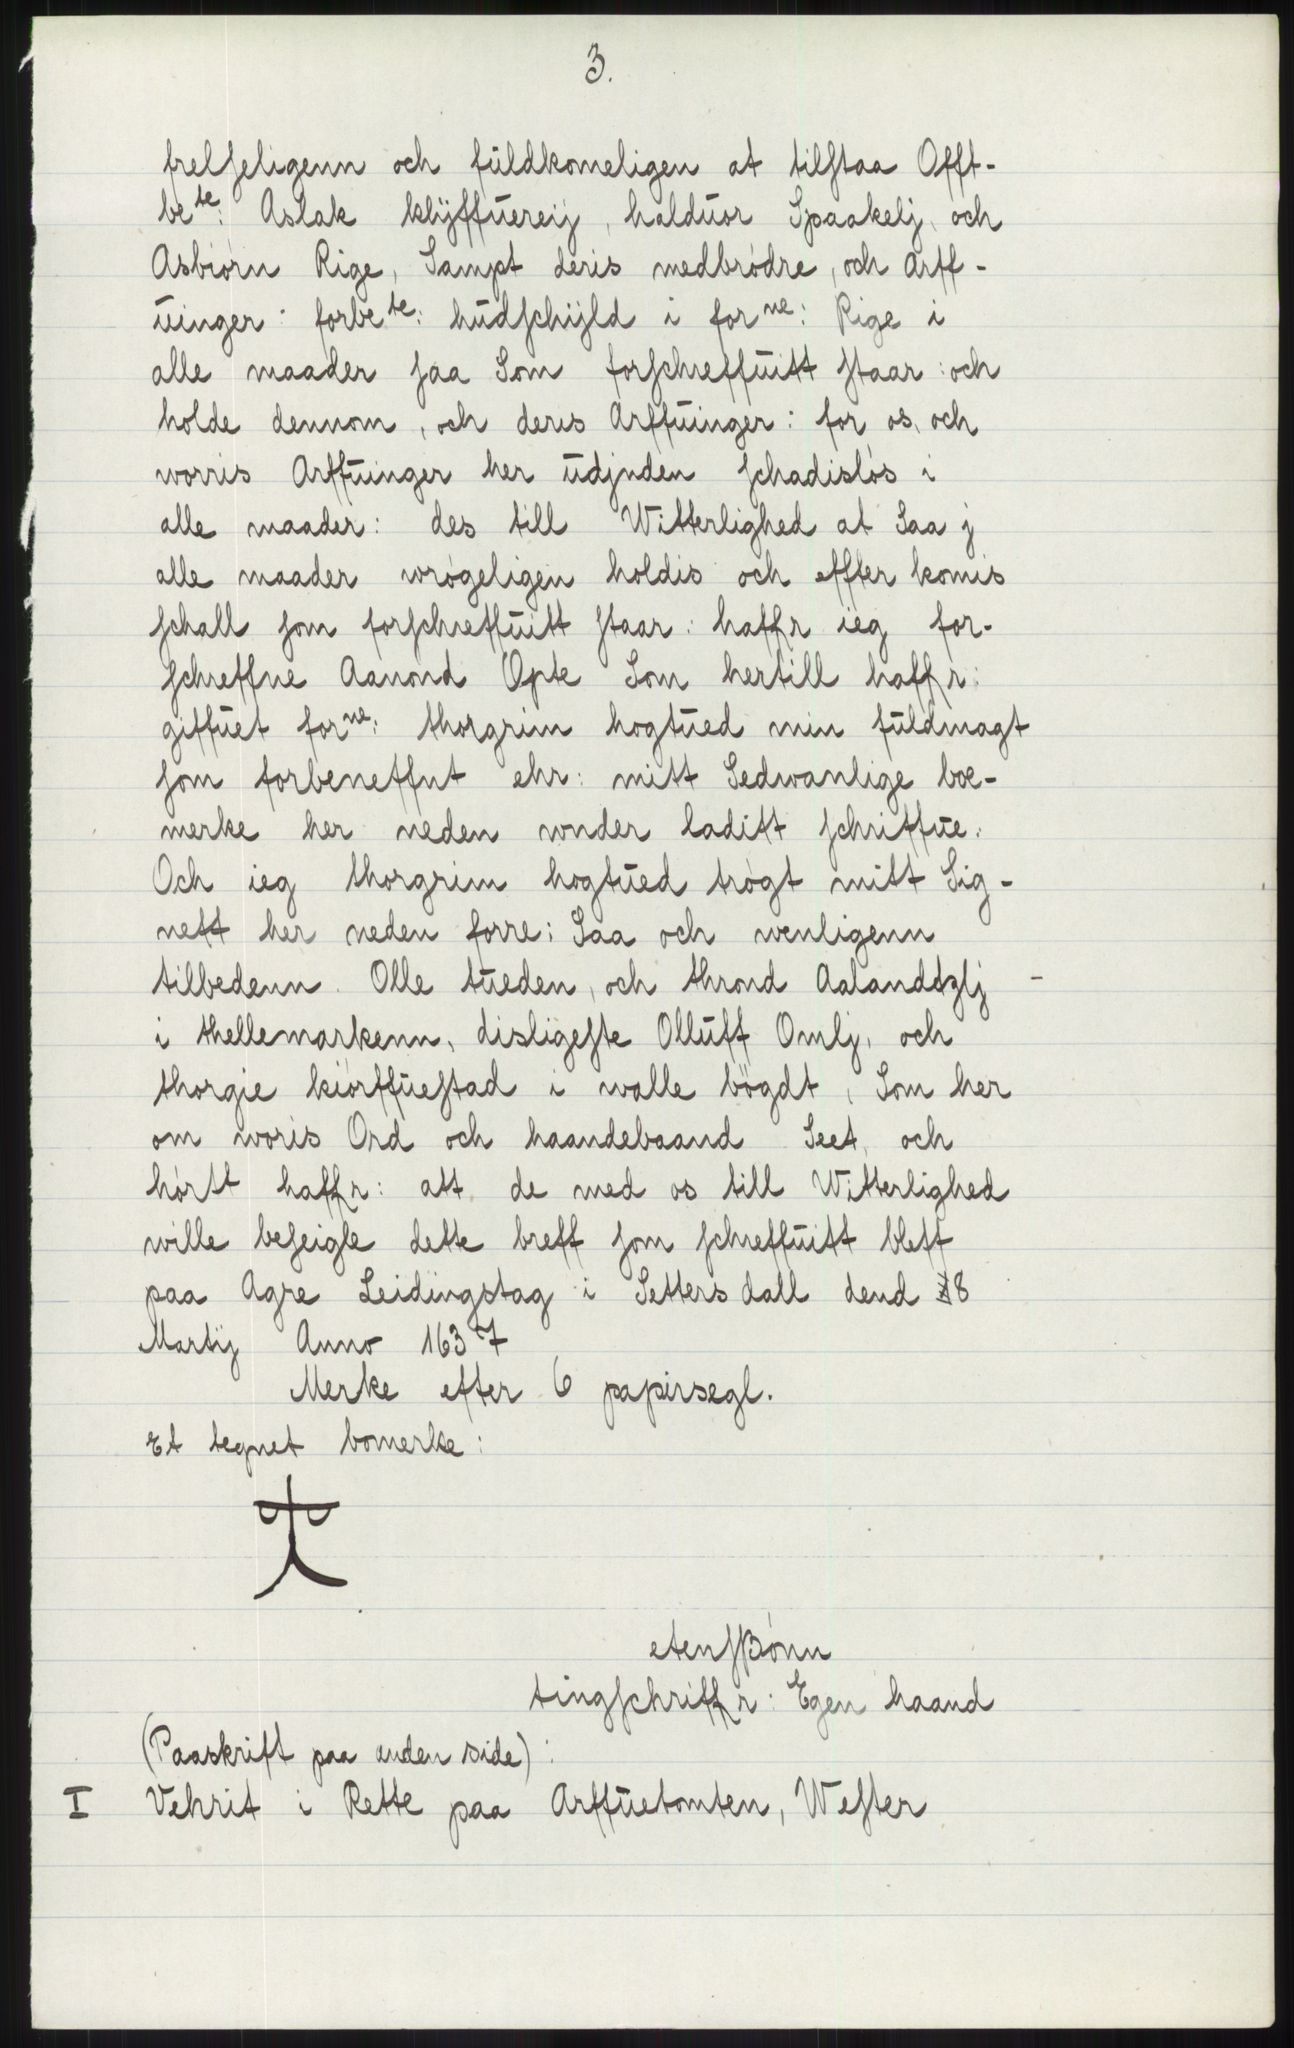 3.
frelſeligenn och fuldkomeligen at tilſtaa Offt-
be<sup>te</sup>: Aslak klÿffuereÿ, halduor Spaakelj, och
Asbiørn Rige, Sampt deris medbrødre, och Arff-
uinger: forbe<sup>te</sup>: hudſchÿld i for<sup>ne</sup>: Rige i
alle maader ſaa Som forſchreffuitt ſtaar: och
holde dennom, och deris Arffuinger: for os, och
worris Arffuinger her udjnden ſchadisløs i
alle maader: des till Witterlighed at Saa j
alle maader wrøgeligen holdis och effter komis
ſchall ſom forſchreffuitt ſtaar: haffr ieg for-
ſchreffne Aanond Opte Som hertill haffr:
giffuet for<sup>ne</sup>: thorgrim hogtued min fuldmagt
ſom forbeneffnt ehr: mitt Sedwanlige boe-
merke her neden wnder laditt ſchriffue:
Och ieg thorgrim hogtued trøgt mitt Sig-
nett her neden forre: Saa och wenligenn
tilbedenn Olle tueden, och thrond Aalandtzlj -
i thellemarkenn, disligeſte Olluff Omlj, och
thorgie kiørffueſtad i walle bøgdt, Som her
om woris Ord och haandebaand Seet, och
hørtt haffr: att de med os till Witterlighed
wille beſeigle dette breff ſom ſchreffuitt bleff
paa Agre Leidingstag i Setters dall dend 18
Martij Anno 1637
Merke efter 6 papirsegl.
Et tegnet bomerke:
etenſſønn
tingſchriffr: Egen haand
(Paaskrift paa anden side):
I Vehrit i Rette paa Arffuetomten, Weſter